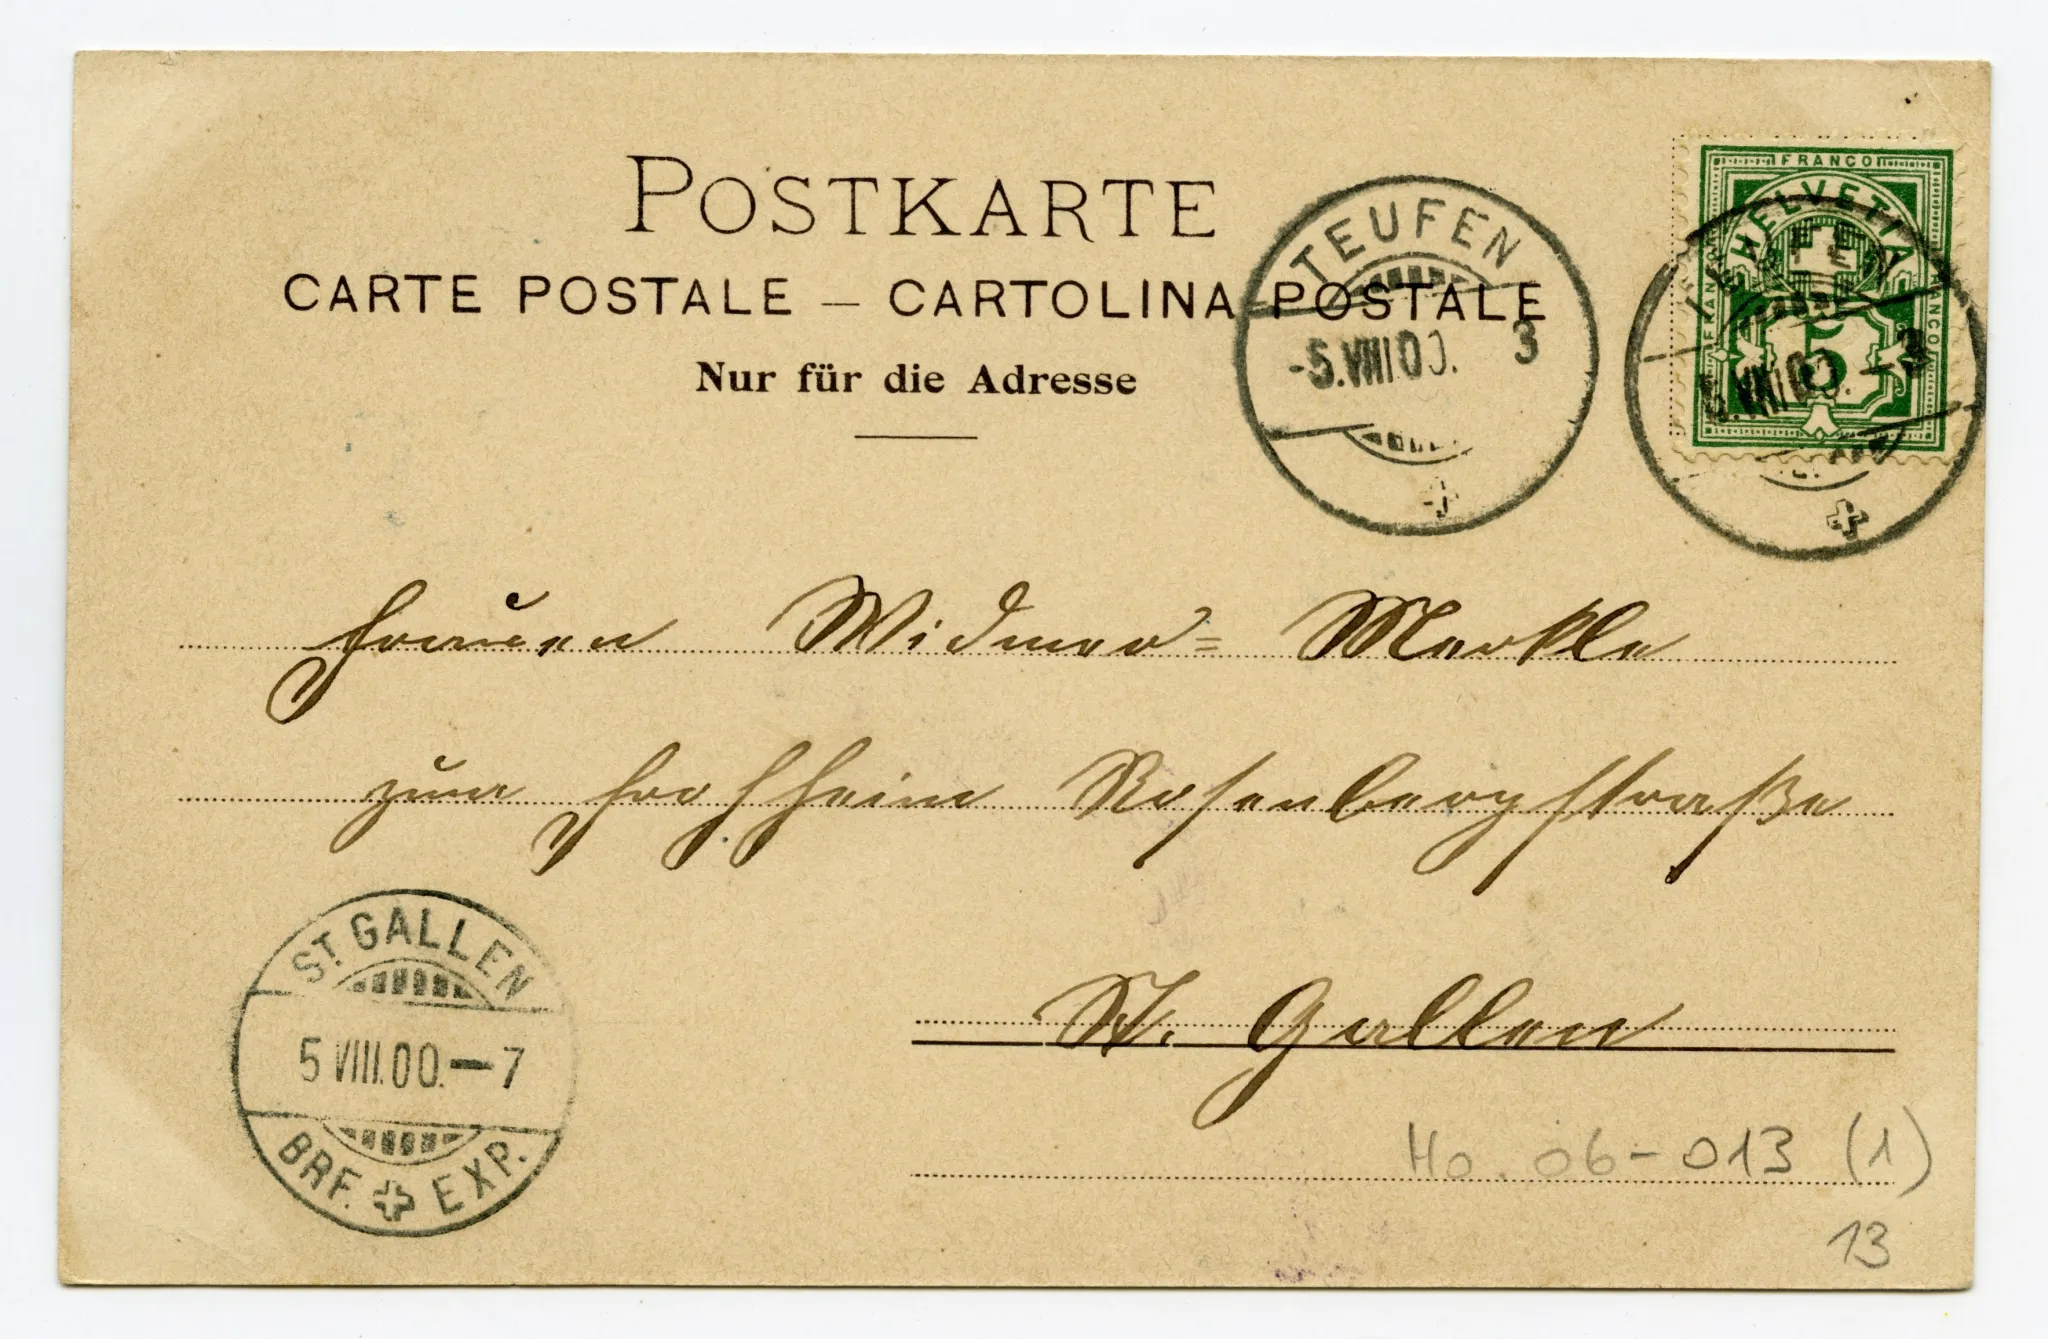 POSTKARTE
CARTE POSTALE — CARTOLINA POSTALE
Nur für die Adresse
TEUFEN
-5.VIII.00. 3
FRANCO
HELVETIA
FRANCO
FRANCO
5
5.VIII.00.-3
Frauen Widmer= Merkle
zum Frohheim Rosenbergstraße
St. Gallen
ST. GALLEN
5 VIII.00.—7
BRF. EXP.
Ho. 06-013 (1)
13